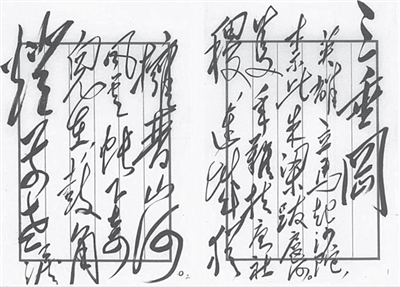 三垂岡
英雄立馬起沙陀,
奈此朱梁跋扈何。
隻手難扶唐社
稷,連城猶
1
擁晉山河。
風雲帳下奇
兒在,鼓角
燈前老淚
2